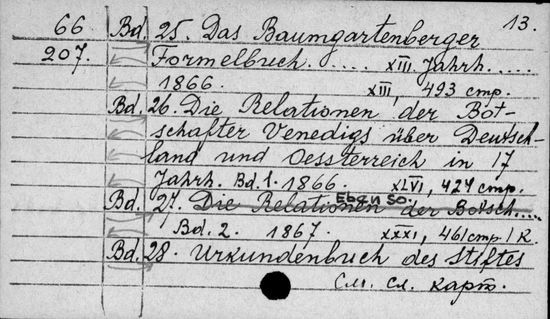 13.
66 Bd. 25. Das Baumgartenberger
207. Formelbuch. .... XIII. Jahrh. ....
1866. XIII, 493 стр.
Bd. 26. Die Relationen der Bot-
schafter Venedigs über Deutsch-
land und Oessterreich in 17
Jahrh. Bd. 1. 1866. XLVI, 424 стр.
Eben so.
Bd. 27. Die Relationen der Botsch....
Bd. 2. 1867. XXXI, 461 стр. / R.
Bd. 28. Urkundenbuch des Stiftes
См. сл. карт.